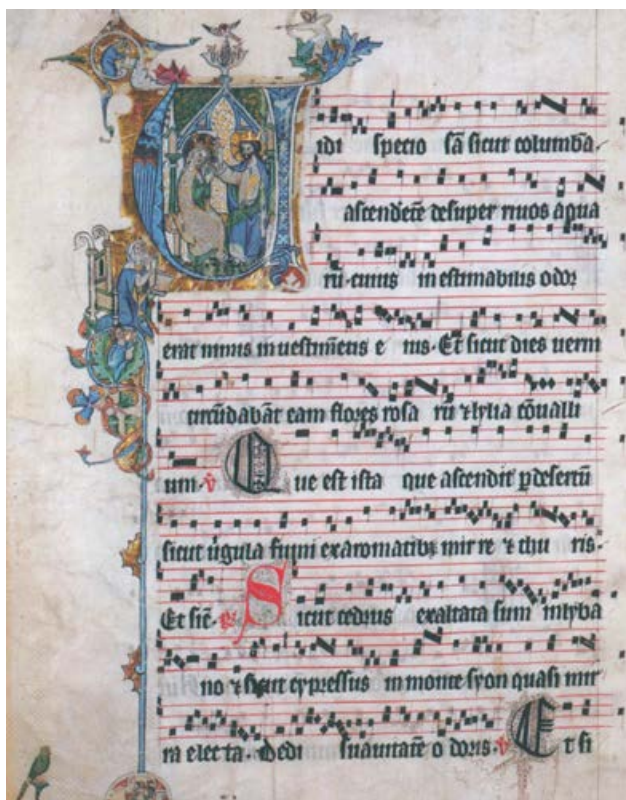 Vidi specio sā sicut columbā.
ascendētē desuper riuos aqua
rū. cuius inestimabilis odor
erat nimis in uestimētis e ius. Et sicut dies uerni
circūdabāt eam flores rosa rū ⁊ lylia cōualli
um. ℣ Que est ista que ascendit ꝑ desertū
sicut ūgula fumi ex aromatibꝫ mir re ⁊ thu ris.
Et sic̄. ℟ Sicut cedrus exaltata sum in lyba
no ⁊ sicut cypressus in monte syon quasi mir
ra elec ta. Dedi suauitatē o doris. ℣ Et si